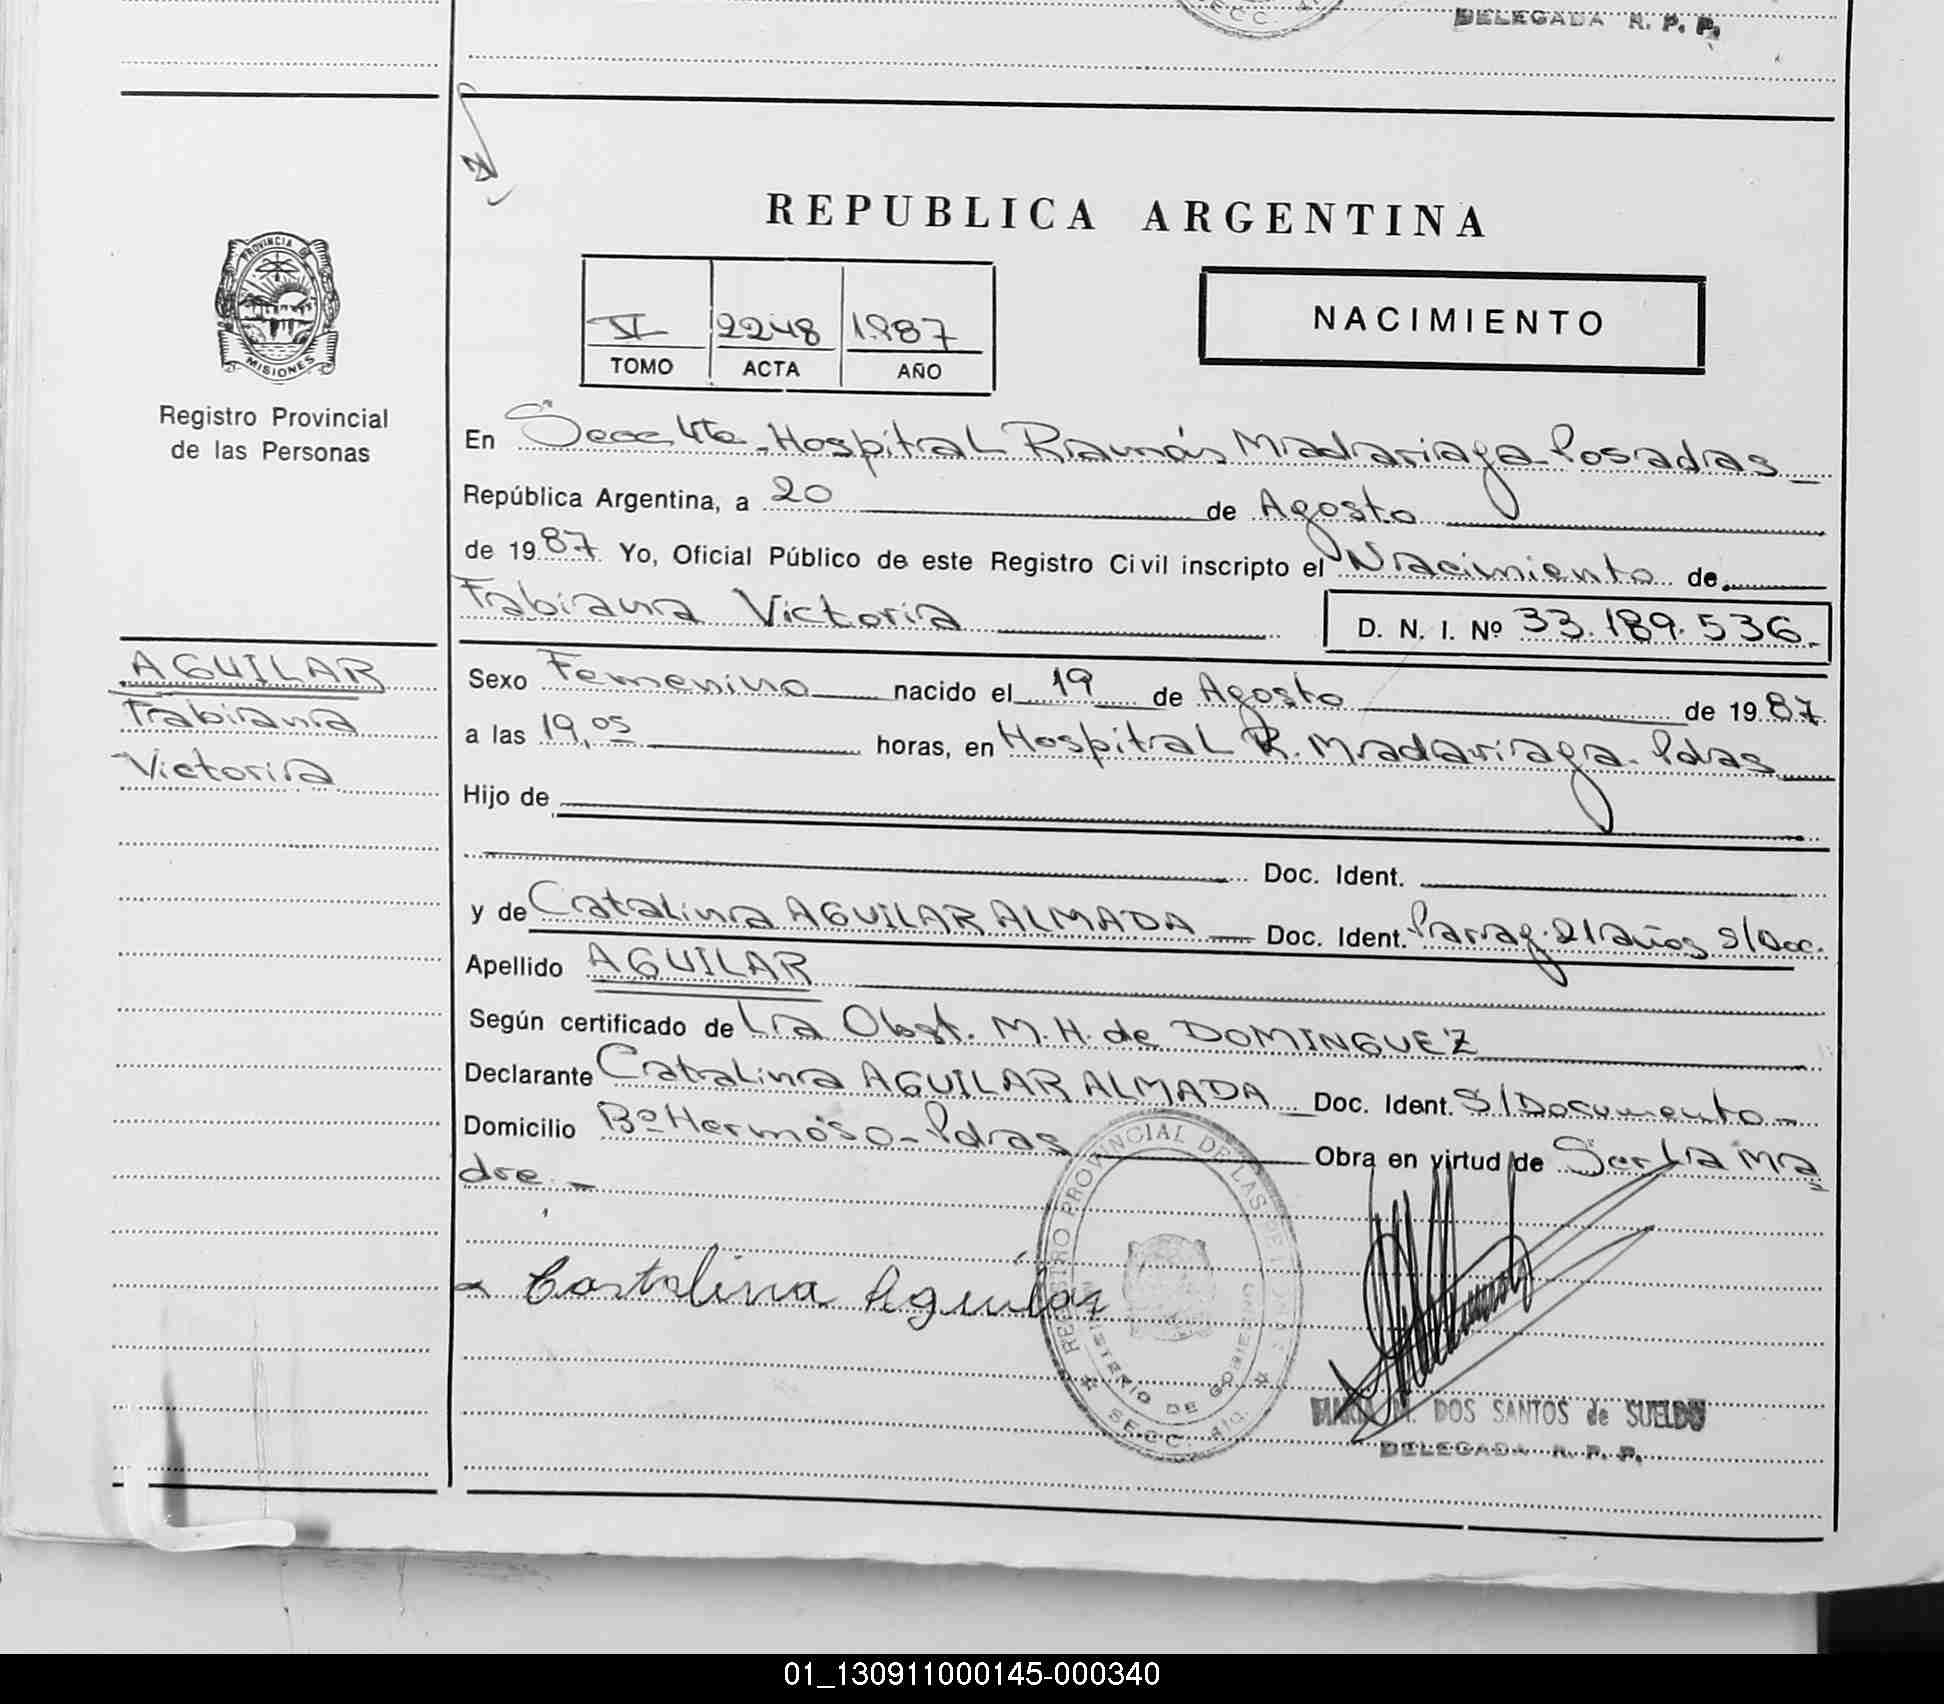 SECC. 4
DELEGADA R. P. P.
REPUBLICA ARGENTINA
PROVINCIA DE
MISIONES
Registro Provincial
de las Personas
2248 1.987
TOMO ACTA AÑO
NACIMIENTO
En Secc 4ta - Hospital Ramón Madariaga - Posadas
República Argentina, a 20 de Agosto
de 1987 Yo, Oficial Público de este Registro Civil inscripto el Nacimiento de
Fabiana Victoria D. N. I. Nº 33.189.536.
AGUILAR
Fabiana
Victoria
Sexo Femenino nacido el 19 de Agosto de 1987
a las 19,05 horas, en Hospital R. Madariaga - Pdas
Hijo de
Doc. Ident.
y de Catalina AGUILAR ALMADA Doc. Ident. Parag. 21 años S/Doc.
Apellido AGUILAR
Según certificado de La Obst. M. H. de DOMINGUEZ
Declarante Catalina AGUILAR ALMADA Doc. Ident. S/Documento -
Domicilio Bº Hermoso - Pdas Obra en virtud de Ser La Ma
dre -
Catalina Aguilar
REGISTRO PROVINCIAL DE LAS PERSONAS
MINISTERIO DE GOBIERNO
SECC. 4ta.
MARIA M. DOS SANTOS de SUELDO
DELEGADA R. P. P.
01_130911000145-000340